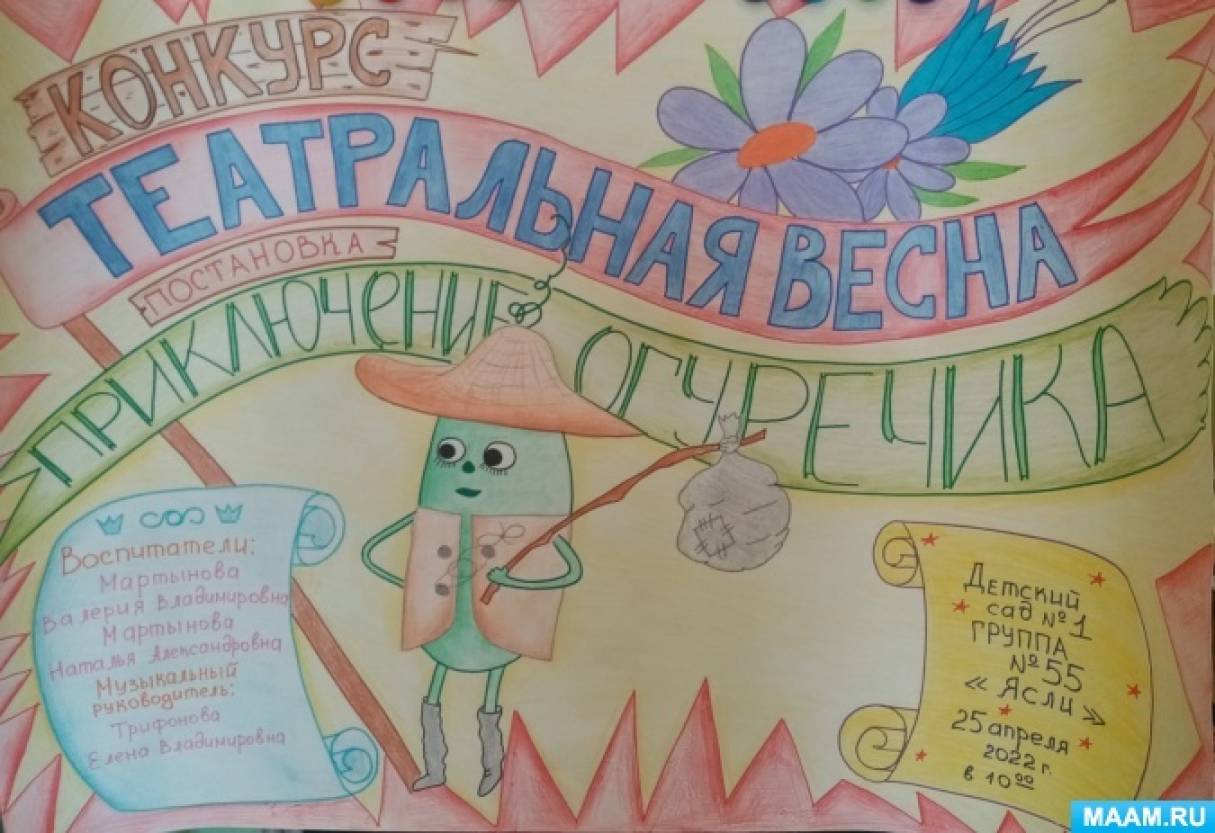 КОНКУРС
ТЕАТРАЛЬНАЯ ВЕСНА
ПОСТАНОВКА
ПРИКЛЮЧЕНИЕ ОГУРЕЧИКА
Воспитатели:
Мартынова
Валерия Владимировна
Мартынова
Наталья Александровна
Музыкальный
руководитель:
Трифонова
Елена Владимировна
Детский
сад №1
ГРУППА
№55
« Ясли »
25 апреля
2022 г.
в 10 00
MAAM.RU